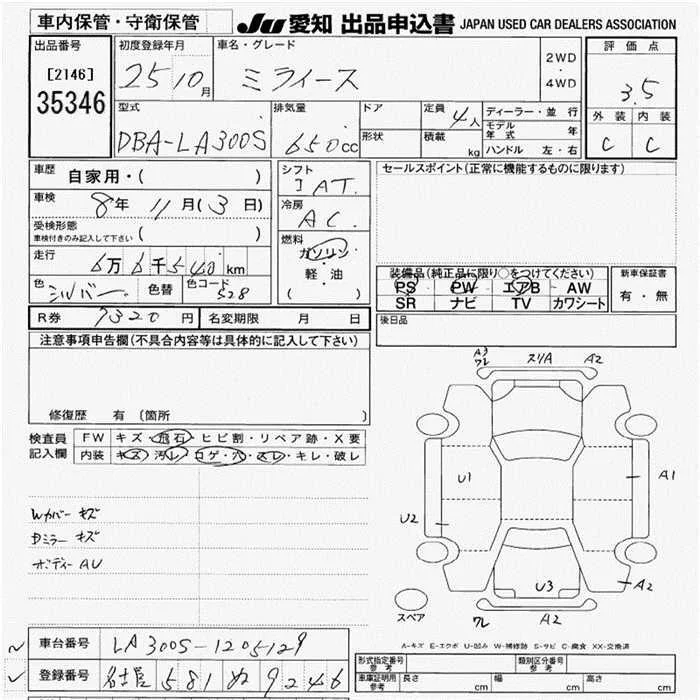 車内保管・守衛保管
JU 愛知 出品申込書 JAPAN USED CAR DEALERS ASSOCIATION
出品番号
[2146]
35346
初度登録年月
25 10月
車名・グレード
ミライース
2WD
・
4WD
評価点
3.5
外装 内装
C C
型式
DBA-LA300S
排気量
650cc
ドア
形状
定員
4人
積載
kg
ディーラー・並行
モデル年式 年
ハンドル 左・右
車歴
自家用・( )
車検
8年 11月(3日)
受検形態
車検付きのみ記入して下さい ( )
走行
6万6千540km
色
シルバー
色替
色コード
S28
シフト
IAT.
冷房
AC.
燃料
ガソリン
・
軽・油
( )
セールスポイント(正常に機能するものに限ります)
装備品(純正品に限り○をつけてください)
PS PW エアB AW
SR ナビ TV カワシート
新車保証書
有・無
R券 7320円
名変期限 月 日
後日品
注意事項申告欄(不具合内容等は具体的に記入して下さい)
修復歴 有(箇所 )
検査員
記入欄
FW キズ・飛石・ヒビ割・リペア跡・X要
内装 キズ・汚レ・コゲ・穴・スレ・キレ・破レ
Wカバーキズ
Dミラーキズ
ボディーAU
A3
ワレ
スリA
A2
U1
A1
U2
U3
A2
ワレ
A2
スペア
A-キズ E-エクボ U-凹み W-補修跡 S-サビ C-腐食 XX-交換済
車台番号
LA300S-1205129
登録番号
名古屋 581 ぬ 9246
形式指定番号
参考
類別区分番号
参考
車庫証明用
参考
長さ cm
幅 cm
高さ cm